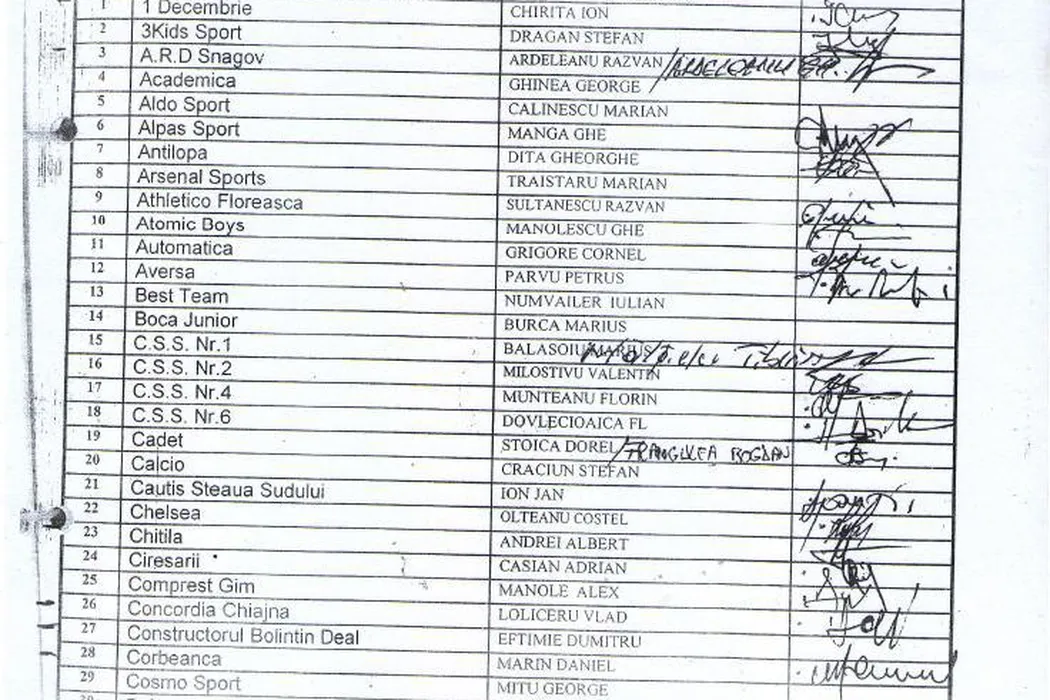 1 1 Decembrie CHIRITA ION
2 3Kids Sport DRAGAN STEFAN
3 A.R.D Snagov ARDELEANU RAZVAN
4 Academica GHINEA GEORGE
5 Aldo Sport CALINESCU MARIAN
6 Alpas Sport MANGA GHE
7 Antilopa DITA GHEORGHE
8 Arsenal Sports TRAISTARU MARIAN
9 Athletico Floreasca SULTANESCU RAZVAN
10 Atomic Boys MANOLESCU GHE
11 Automatica GRIGORE CORNEL
12 Aversa PARVU PETRUS
13 Best Team NUMVAILER IULIAN
14 Boca Junior BURCA MARIUS
15 C.S.S. Nr.1 BALASOIU MARIUS
16 C.S.S. Nr.2 MILOSTIVU VALENTIN
17 C.S.S. Nr.4 MUNTEANU FLORIN
18 C.S.S. Nr.6 DOVLECIOAICA FL
19 Cadet STOICA DOREL
20 Calcio CRACIUN STEFAN
21 Cautis Steaua Sudului ION JAN
22 Chelsea OLTEANU COSTEL
23 Chitila ANDREI ALBERT
24 Ciresarii CASIAN ADRIAN
25 Comprest Gim MANOLE ALEX
26 Concordia Chiajna LOLICERU VLAD
27 Constructorul Bolintin Deal EFTIMIE DUMITRU
28 Corbeanca MARIN DANIEL
29 Cosmo Sport MITU GEORGE